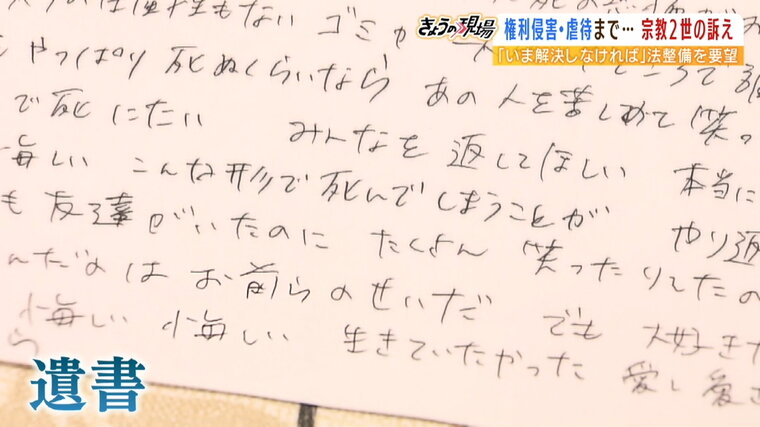 きょうの現場
権利侵害・虐待まで… 宗教2世の訴え
「いま解決しなければ」法整備を要望
もない ゴミ
やっぱり 死ぬくらいなら あの人を苦しめて笑っ
で死にたい みんなを返してほしい 本当に
悔しい こんな形で死んでしまうことが やり返
も友達がいたのに たくさん笑ったりしてたの
んだのはお前らのせいだ でも 大好きだ
悔しい 悔しい 生きていたかった 愛し
ら
遺書